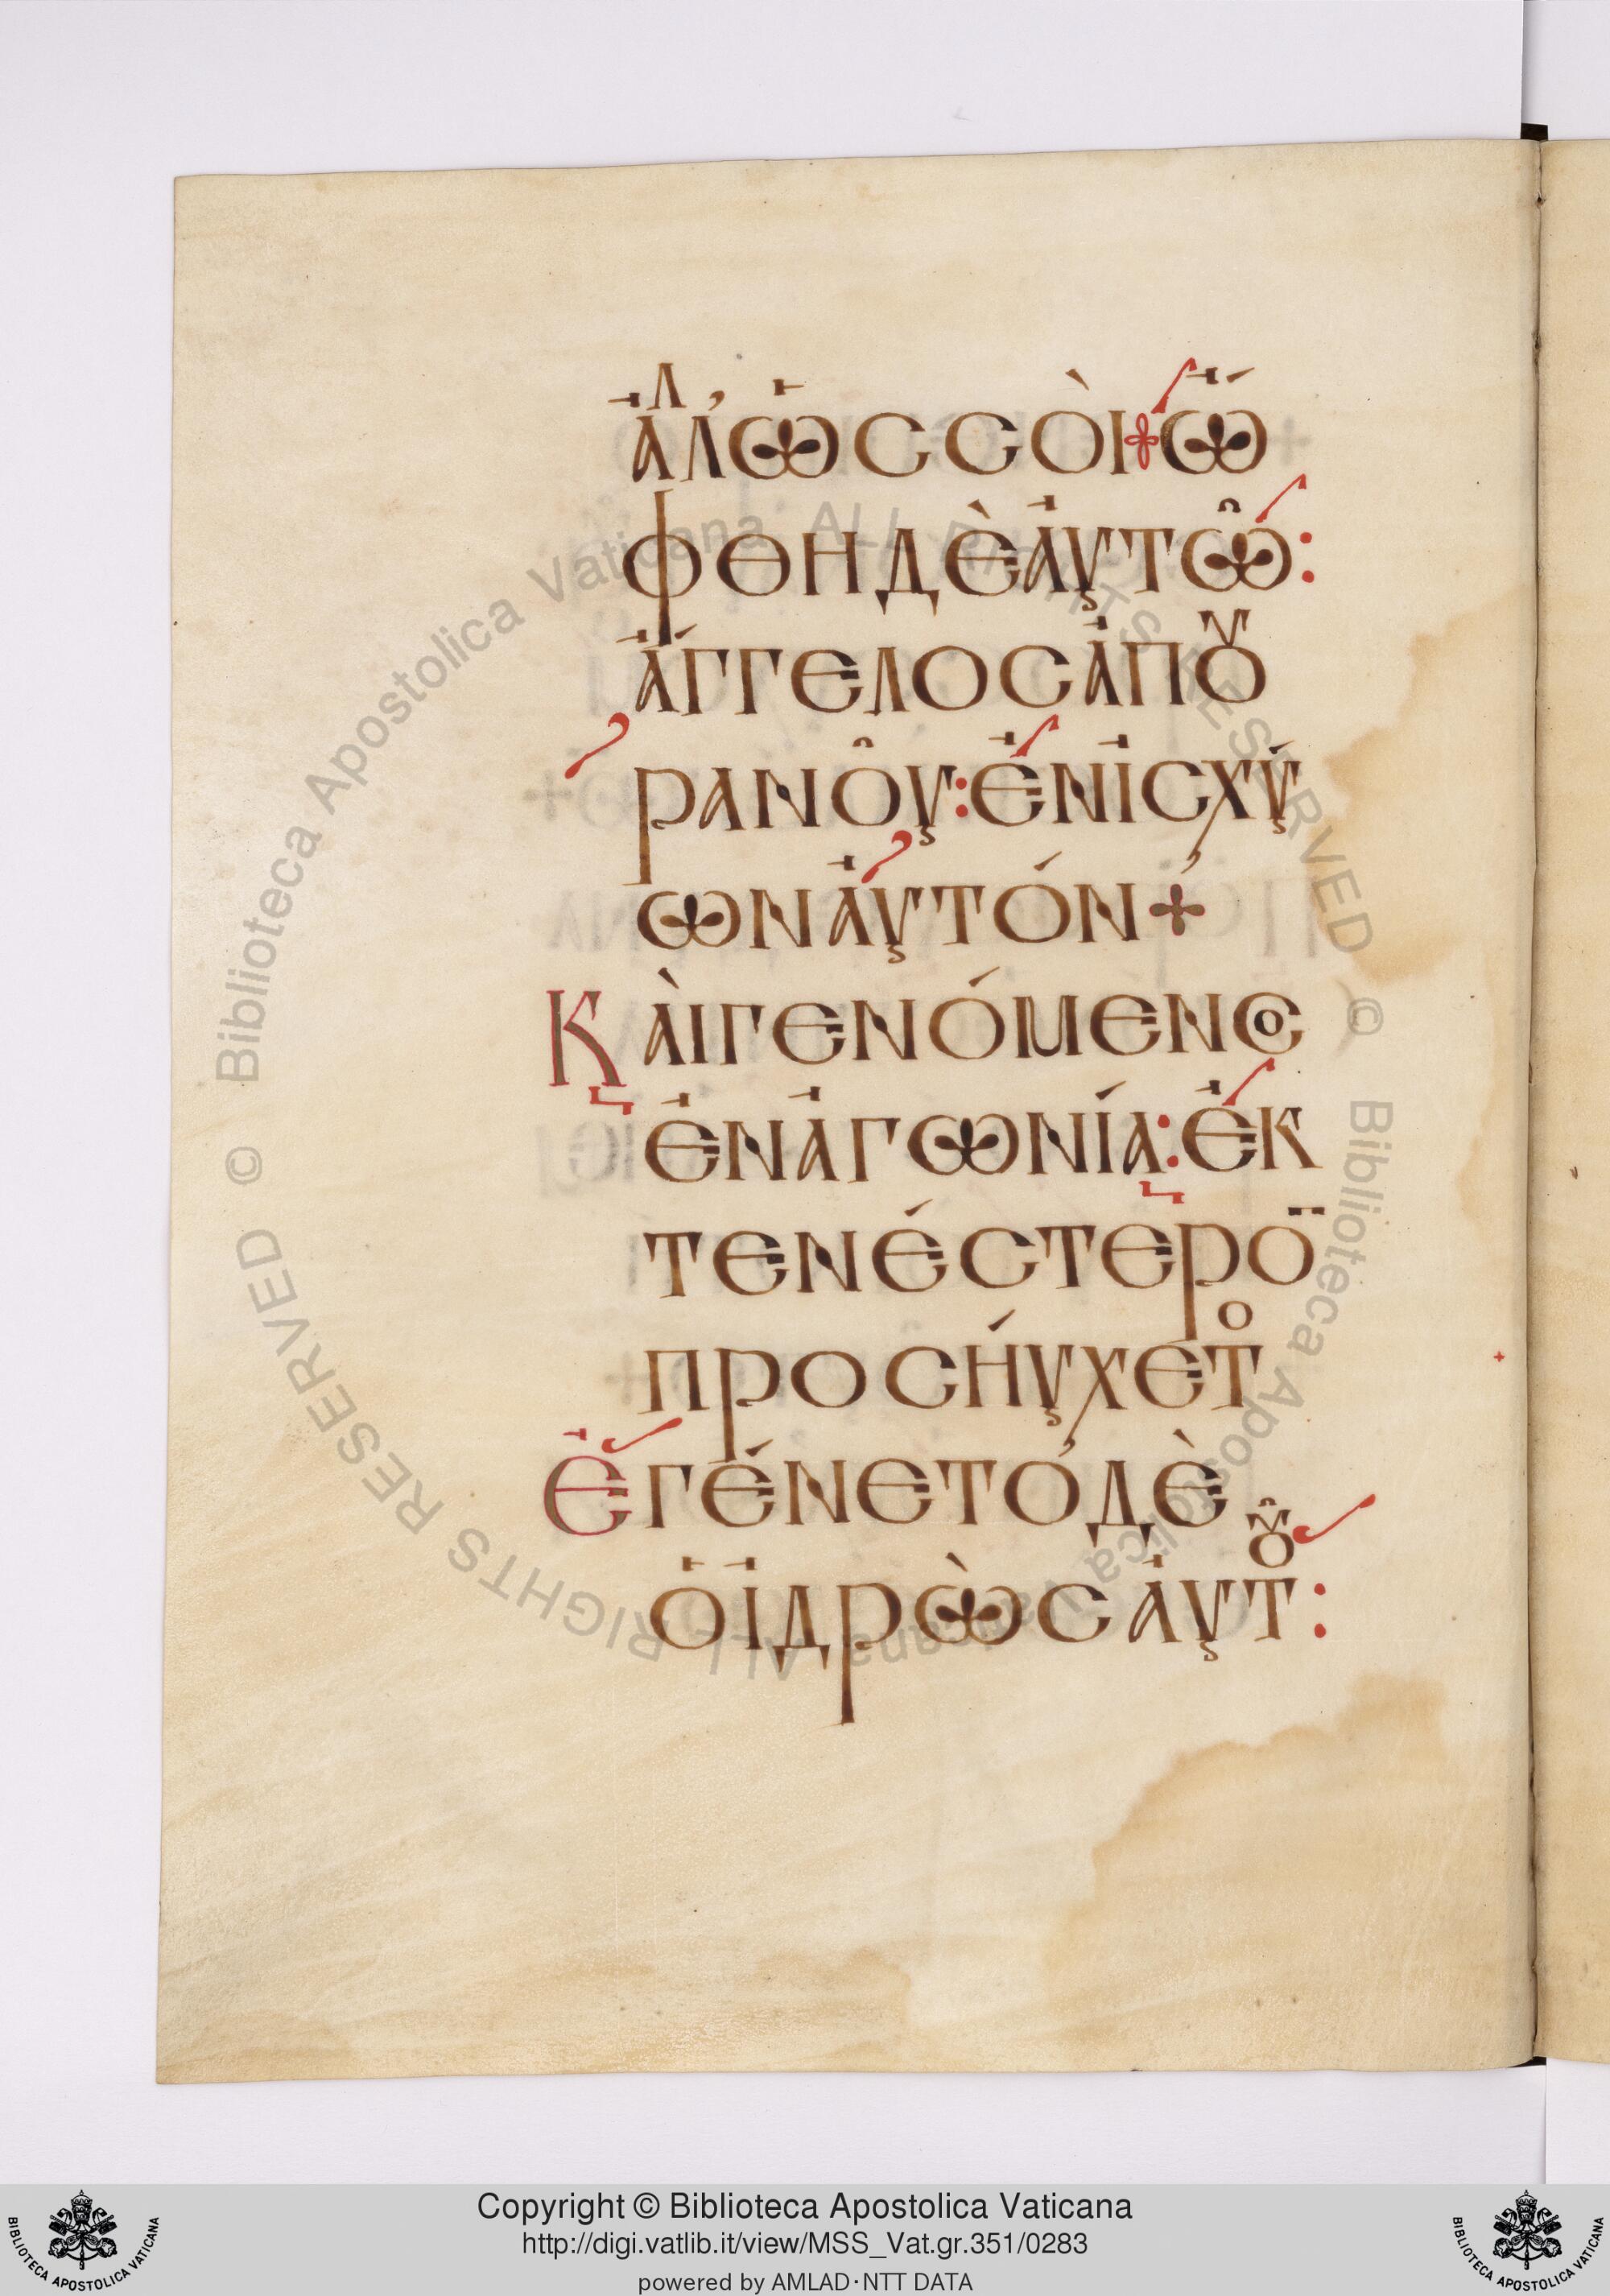 ἀλλ' ὡς σοὶ + ὤ
φθη δὲ ἀυτῶ :
ἄγγελος ἀπ' ȣ
ρανοῦ : ἐνισχύ
ων ἀυτόν +
Κὰι γενόμενος
ἐν ἀγωνία : ἐκ
τενέστερο̈
προσήυχετο
Ἐγένετο δὲ
ὁ ἱδρὼς ἀυτȣ͂ :
© Biblioteca Apostolica Vaticana ALL RIGHTS RESERVED
© Biblioteca Apostolica Vaticana ALL RIGHTS RESERVED
BIBLIOTECA APOSTOLICA VATICANA
Copyright © Biblioteca Apostolica Vaticana
http://digi.vatlib.it/view/MSS_Vat.gr.351/0283
powered by AMLAD·NTT DATA
BIBLIOTECA APOSTOLICA VATICANA